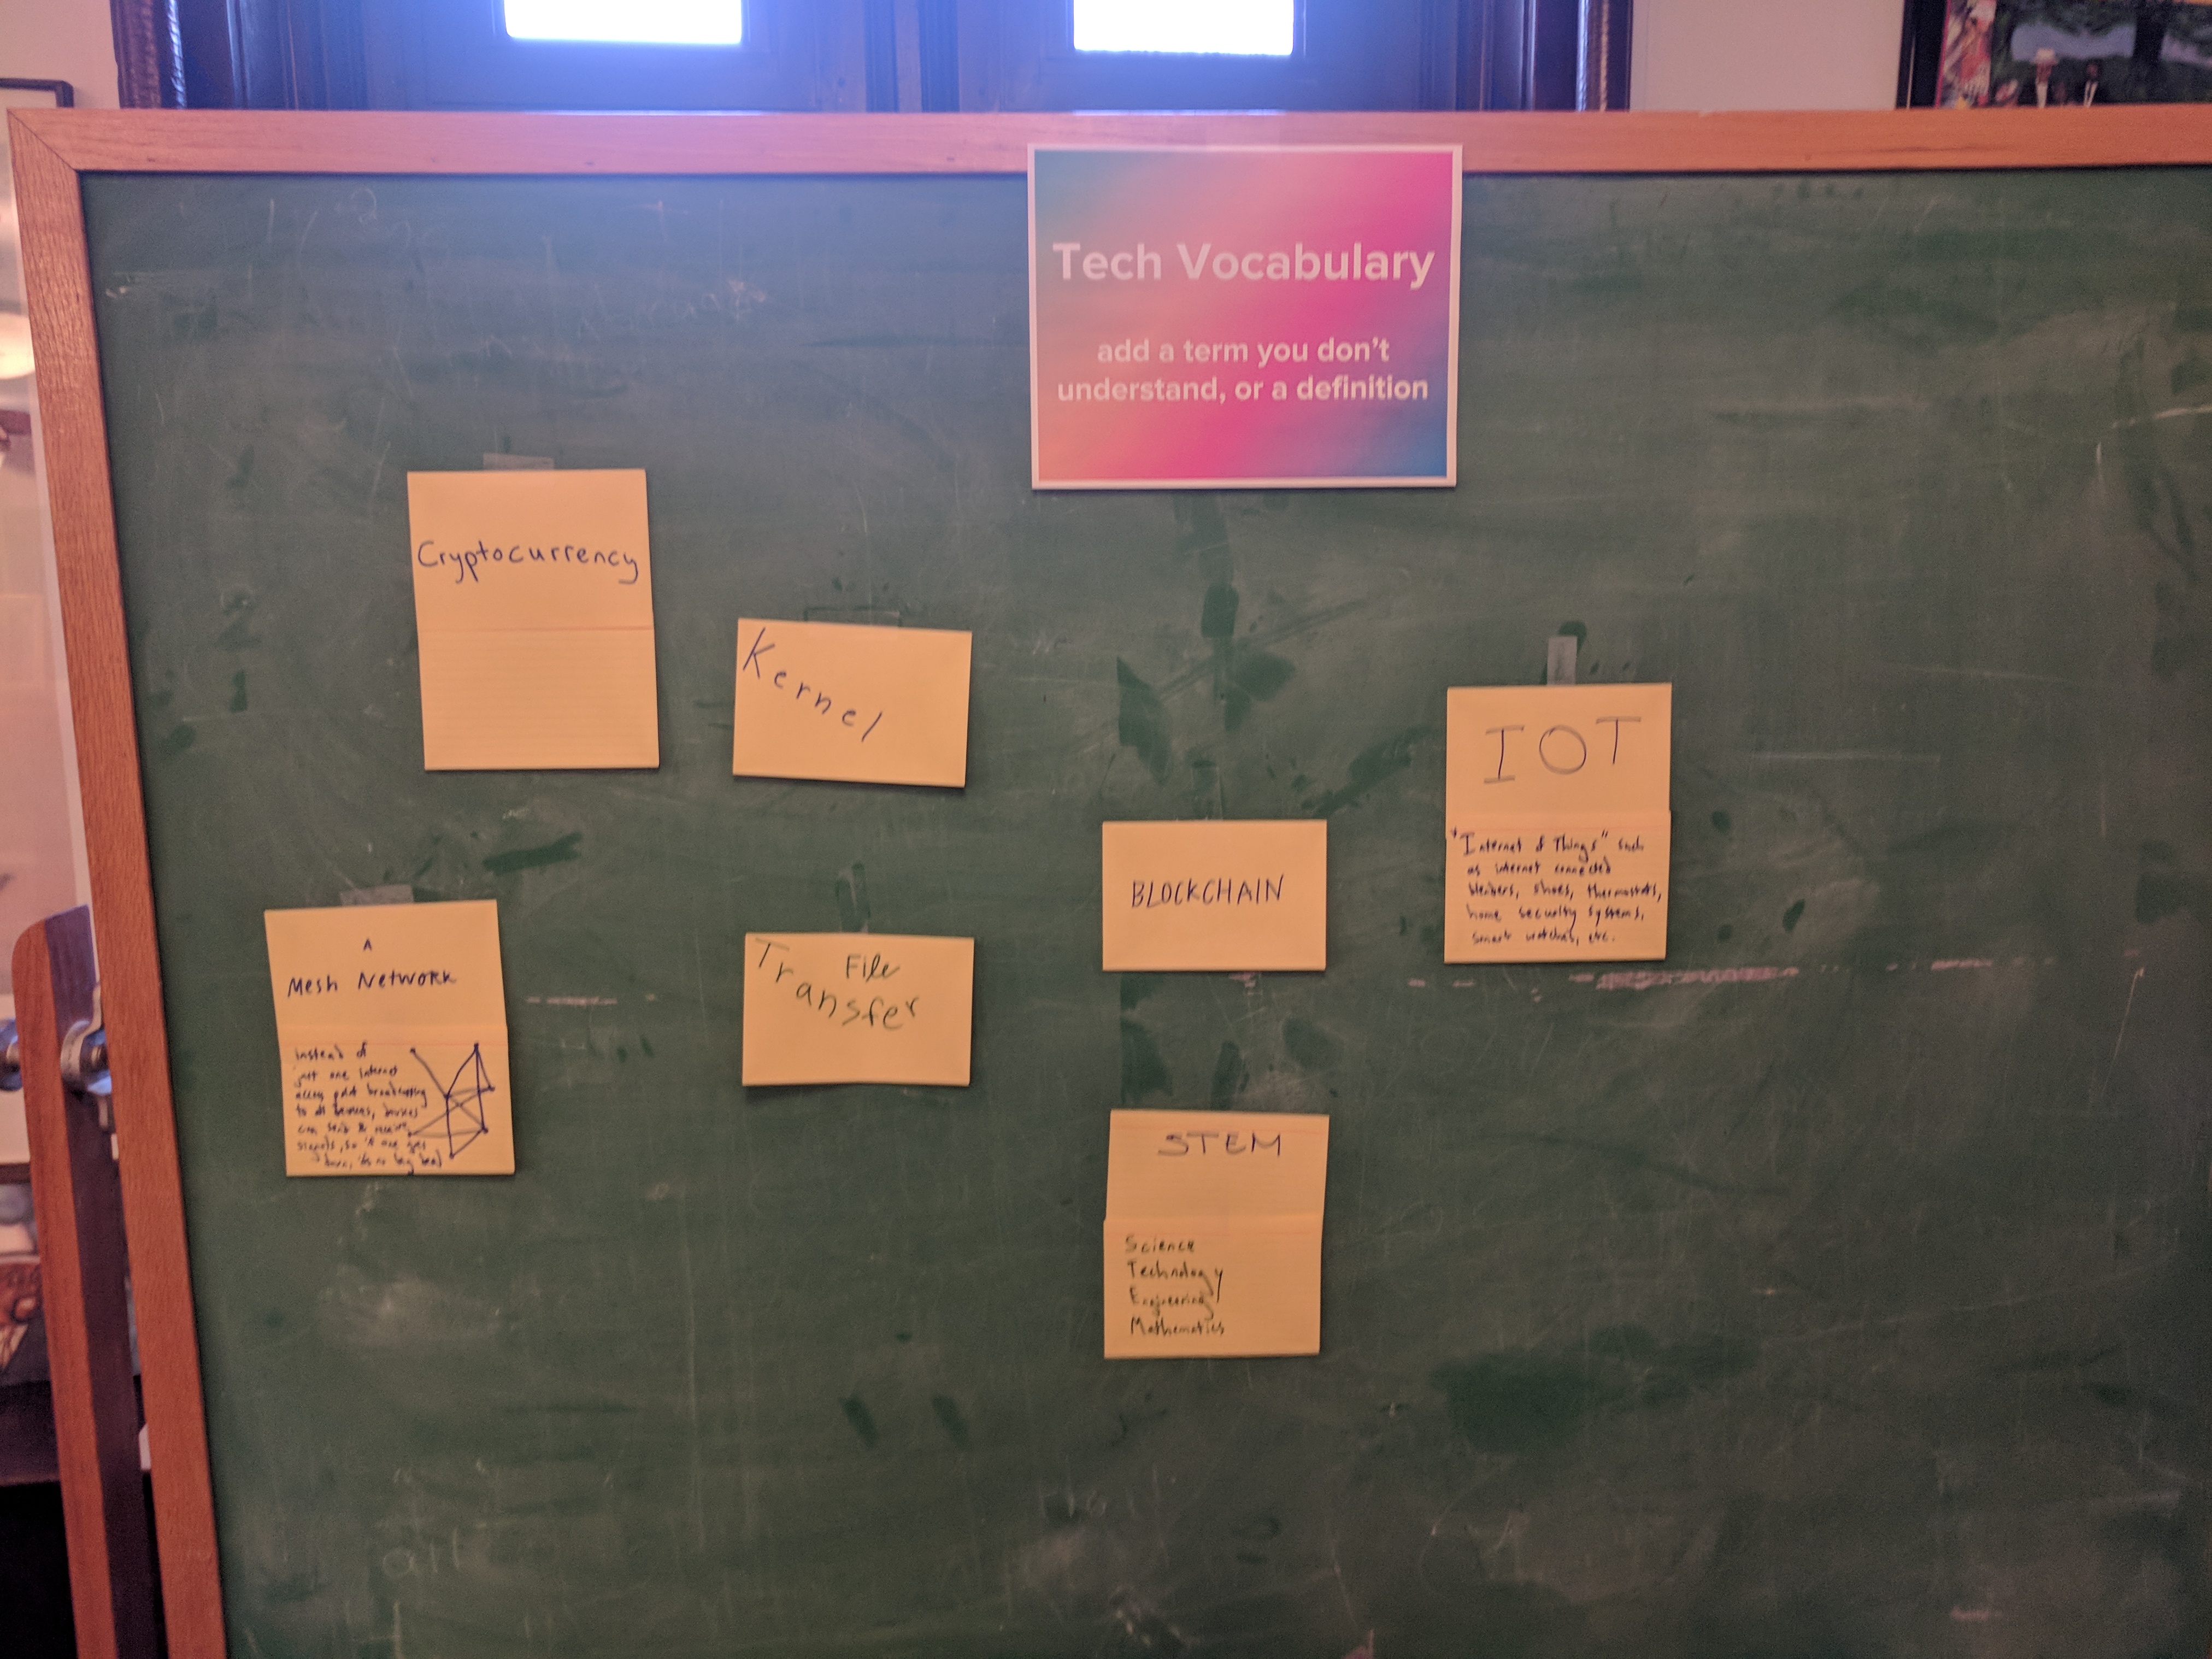 Tech Vocabulary
add a term you don't
understand, or a definition
Cryptocurrency
Kernel
IOT
"Internet of Things" such
as internet connected
blenders, shoes, thermostats,
home security systems,
smart watches, etc.
BLOCKCHAIN
A
Mesh Network
instead of
just one internet
access point broadcasting
to all devices, devices
can send & receive
signals, so if one goes
down, it's no big deal
File
Transfer
STEM
Science
Technology
Engineering
Mathematics
all